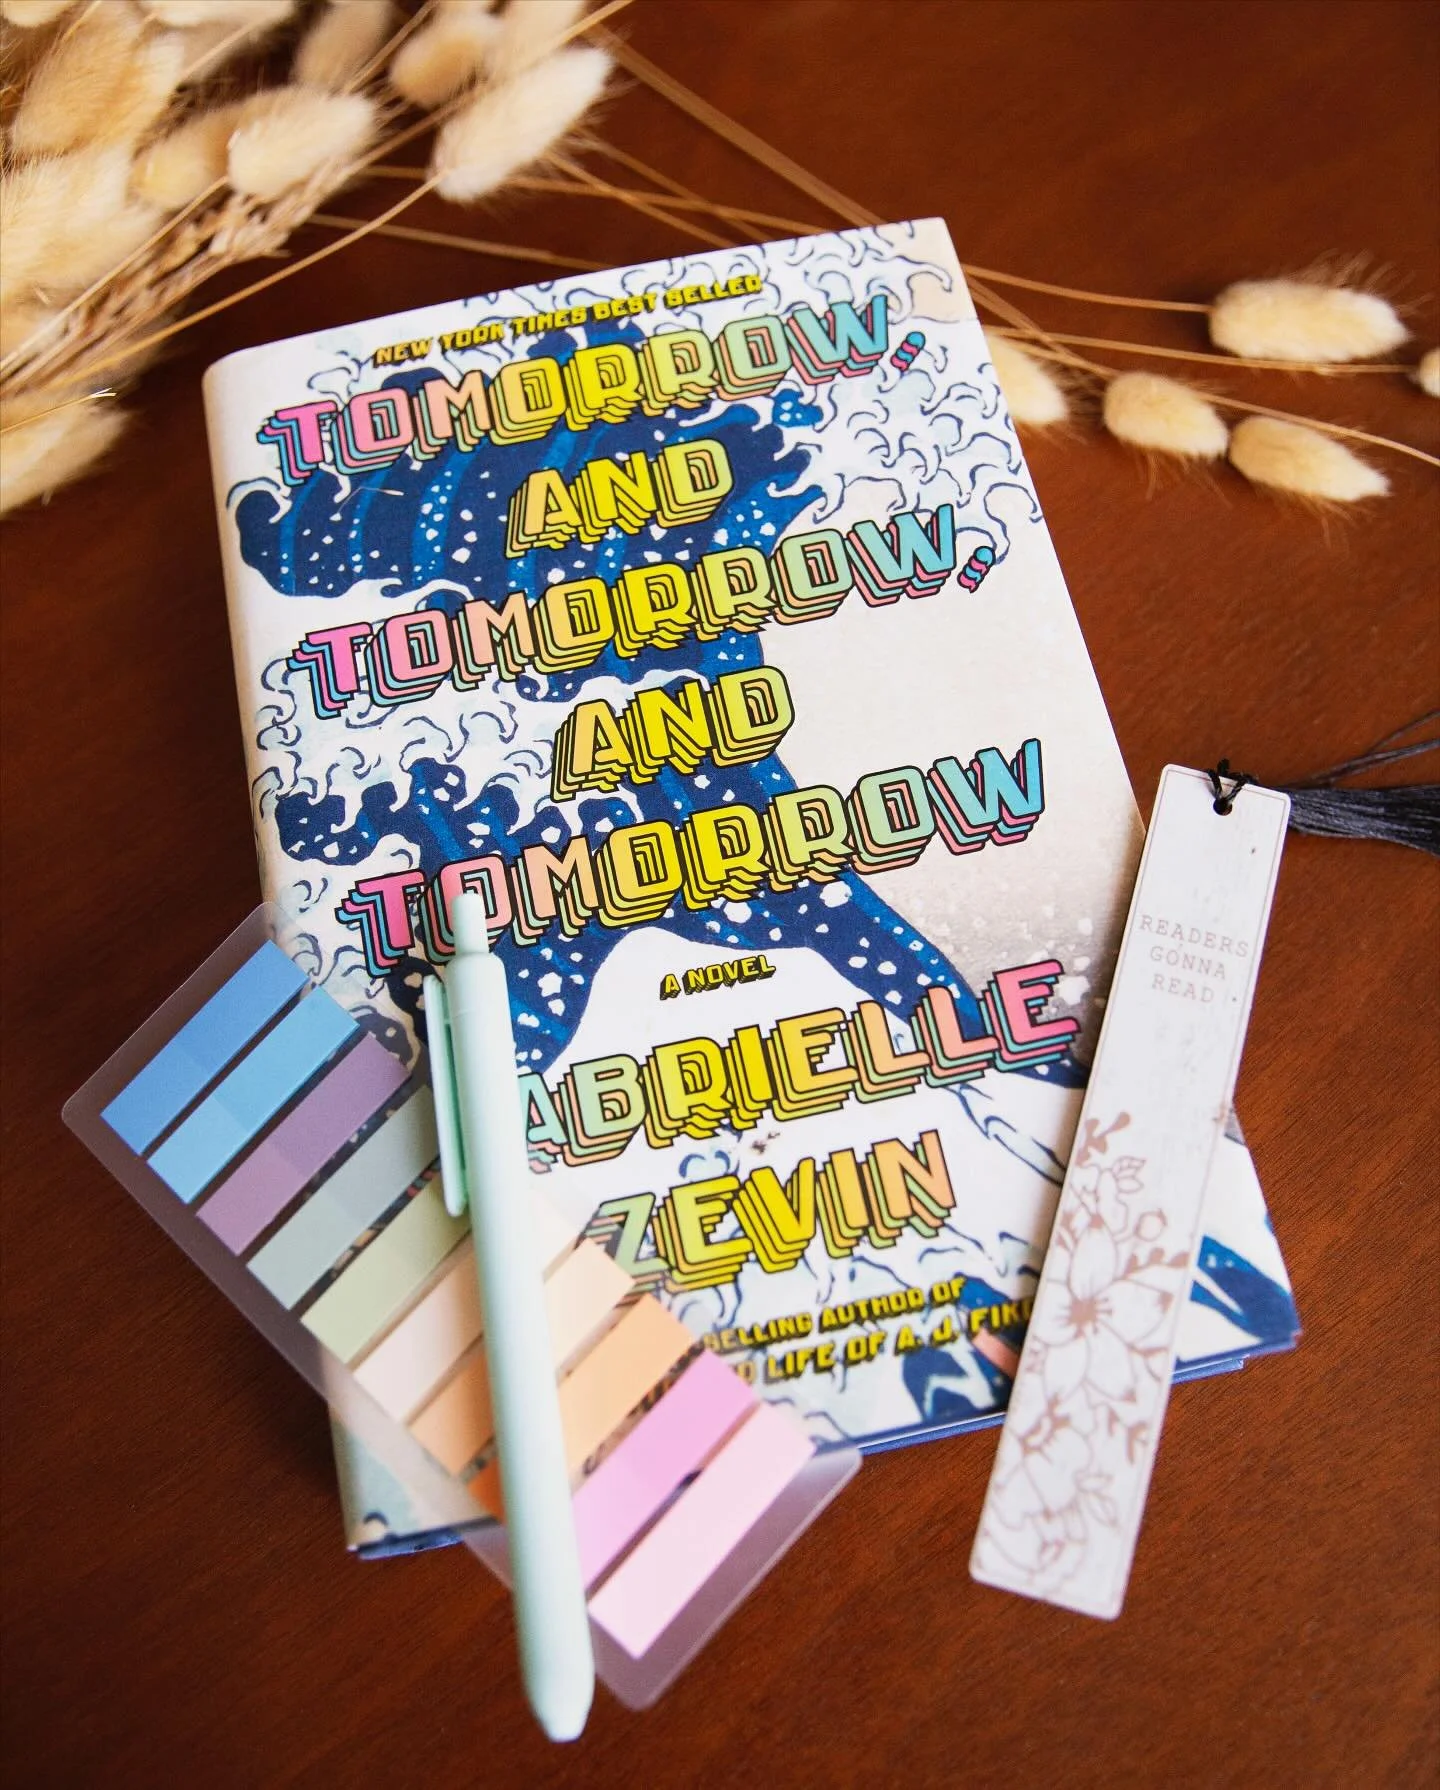 NEW YORK TIMES BEST SELLER
TOMORROW,
AND
TOMORROW,
AND
TOMORROW
A NOVEL
ABRIELLE
ZEVIN
SELLING AUTHOR OF
LIFE OF A. J. FIK
READERS
GONNA
READ